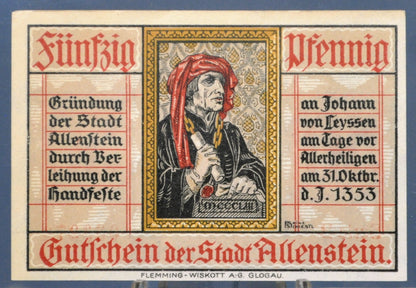 Fünfzig Pfennig
Gründung
der Stadt
Allenstein
durch Ver-
leihung der
Handfeste
an Johann
von Leyssen
am Tage vor
Allerheiligen
am 31. Oktbr.
d. J. 1353
MCCCLIII
Gutschein der Stadt Allenstein.
FLEMMING-WISKOTT A-G. GLOGAU.